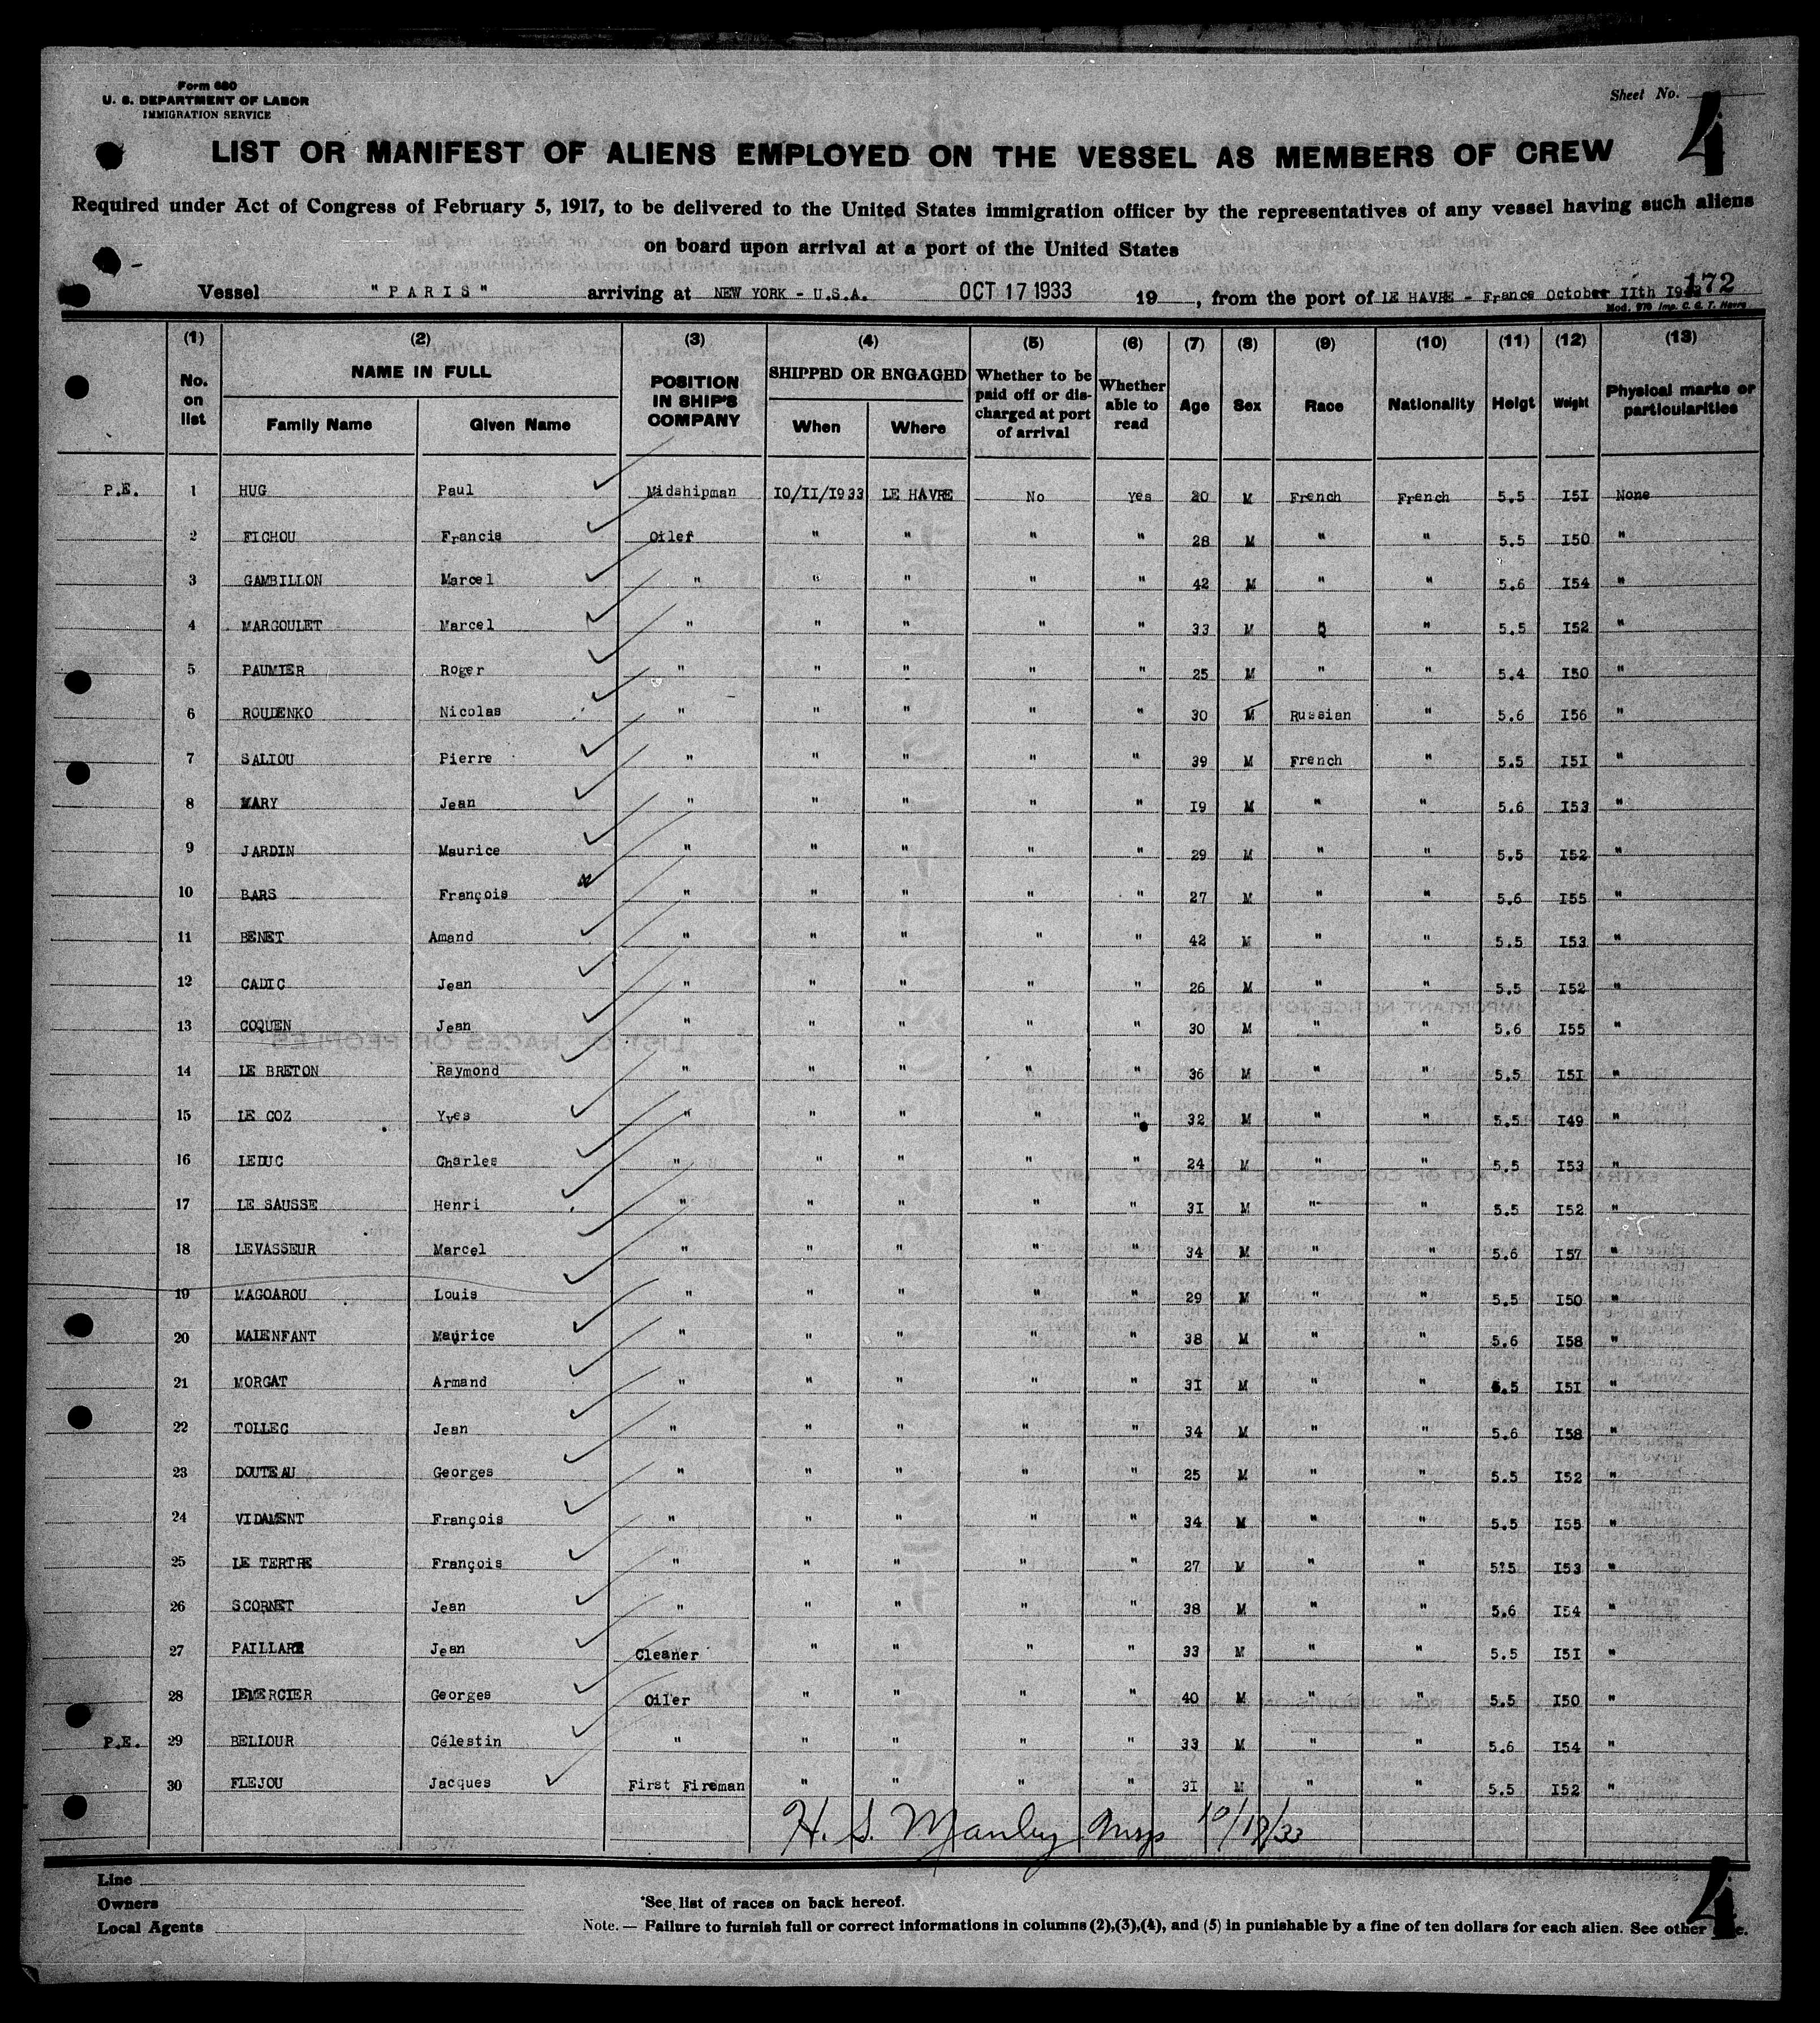 Form 680
U. S. DEPARTMENT OF LABOR
IMMIGRATION SERVICE
Sheet No. 4
LIST OR MANIFEST OF ALIENS EMPLOYED ON THE VESSEL AS MEMBERS OF CREW
Required under Act of Congress of February 5, 1917, to be delivered to the United States immigration officer by the representatives of any vessel having such aliens
on board upon arrival at a port of the United States
172
Vessel "PARIS" arriving at NEW YORK - U.S.A. OCT 17 1933 19 , from the port of LE HAVRE - France October IIth
Mod. 970 Imp. C. G. T. Havre
(1) (2) (3) (4) (5) (6) (7) (8) (9) (10) (11) (12) (13)
No. on list NAME IN FULL Family Name Given Name POSITION IN SHIP'S COMPANY SHIPPED OR ENGAGED When Where Whether to be paid off or discharged at port of arrival Whether able to read Age Sex Race Nationality Heigt Weight Physical marks or particularities
P.E. 1 HUG Paul Midshipman IO/II/I933 LE HAVRE No Yes 20 M French French 5.5 I5I None
2 FICHOU Francis Oiler " " " " 28 M " " 5.5 I50 "
3 GAMBILLON Marcel " " " " " 42 M " " 5.6 I54 "
4 MARGOULET Marcel " " " " " 33 M " 5.5 I52 "
5 PAUMIER Roger " " " " " 25 M " " 5.4 I50 "
6 ROUDENKO Nicolas " " " " " 30 M Russian " 5.6 I56 "
7 SALIOU Pierre " " " " " 39 M French " 5.5 I5I "
8 MARY Jean " " " " " I9 M " " 5.6 I53 "
9 JARDIN Maurice " " " " " 29 M " " 5.5 I52 "
10 BARS François " " " " " 27 M " " 5.6 I55 "
11 BENET Amand " " " " " 42 M " " 5.5 I53 "
12 CADIC Jean " " " " " 26 M " " 5.5 I52 "
13 COQUEN Jean " " " " " 30 M " " 5.6 I55 "
14 LE BRETON Raymond " " " " " 36 M " " 5.5 I5I "
15 LE COZ Yves " " " " " 32 M " " 5.5 I49 "
16 LEDUC Charles " " " " " 24 M " " 5.5 I53 "
17 LE SAUSSE Henri " " " " " 3I M " " 5.5 I52 "
18 LEVASSEUR Marcel " " " " " 34 M " " 5.6 I57 "
19 MAGOAROU Louis " " " " " 29 M " " 5.5 I50 "
20 MALENFANT Maurice " " " " " 38 M " " 5.6 I58 "
21 MORGAT Armand " " " " " 3I M " " 5.5 I5I "
22 TOLLEC Jean " " " " " 34 M " " 5.6 I58 "
23 DOUTEAU Georges " " " " " 25 M " " 5.5 I52 "
24 VIDAMENT François " " " " " 34 M " " 5.5 I55 "
25 LE TERTRE François " " " " " 27 M " " 5?5 I53 "
26 SCORNET Jean " " " " " 38 M " " 5.6 I54 "
27 PAILLARE Jean Cleaner " " " " 33 M " " 5.5 I5I "
28 LEMERCIER Georges Oiler " " " " 40 M " " 5.5 I50 "
P.E. 29 BELLOUR Célestin " " " " " 33 M " " 5.6 I54 "
30 FLEJOU Jacques First Fireman " " " " 3I M " " 5.5 I52 "
H. S. Manley Insp 10/17/33
Line
Owners
Local Agents
*See list of races on back hereof.
Note. — Failure to furnish full or correct informations in columns (2),(3),(4), and (5) in punishable by a fine of ten dollars for each alien. See other
4